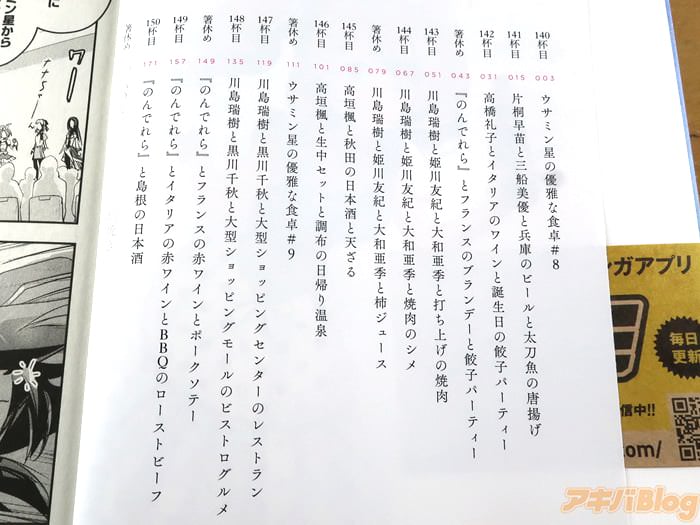 140杯目 003 ウサミン星の優雅な食卓#8
141杯目 015 片桐早苗と三船美優と兵庫のビールと太刀魚の唐揚げ
142杯目 031 高橋礼子とイタリアのワインと誕生日の餃子パーティー
箸休め 043 『のんでれら』とフランスのブランデーと餃子パーティー
143杯目 051 川島瑞樹と姫川友紀と大和亜季と打ち上げの焼肉
144杯目 067 川島瑞樹と姫川友紀と大和亜季と焼肉のシメ
箸休め 079 川島瑞樹と姫川友紀と大和亜季と柿ジュース
145杯目 085 高垣楓と秋田の日本酒と天ざる
146杯目 101 高垣楓と生中セットと調布の日帰り温泉
箸休め 111 ウサミン星の優雅な食卓#9
147杯目 119 川島瑞樹と黒川千秋と大型ショッピングセンターのレストラン
148杯目 135 川島瑞樹と黒川千秋と大型ショッピングモールのビストログルメ
箸休め 149 『のんでれら』とフランスの赤ワインとポークソテー
149杯目 157 『のんでれら』とイタリアの赤ワインとBBQのローストビーフ
150杯目 171 『のんでれら』と島根の日本酒
箸休め
ン星から
に
ワー
ンガアプリ
毎日
更新
信中!!
.com/
アキバBlog